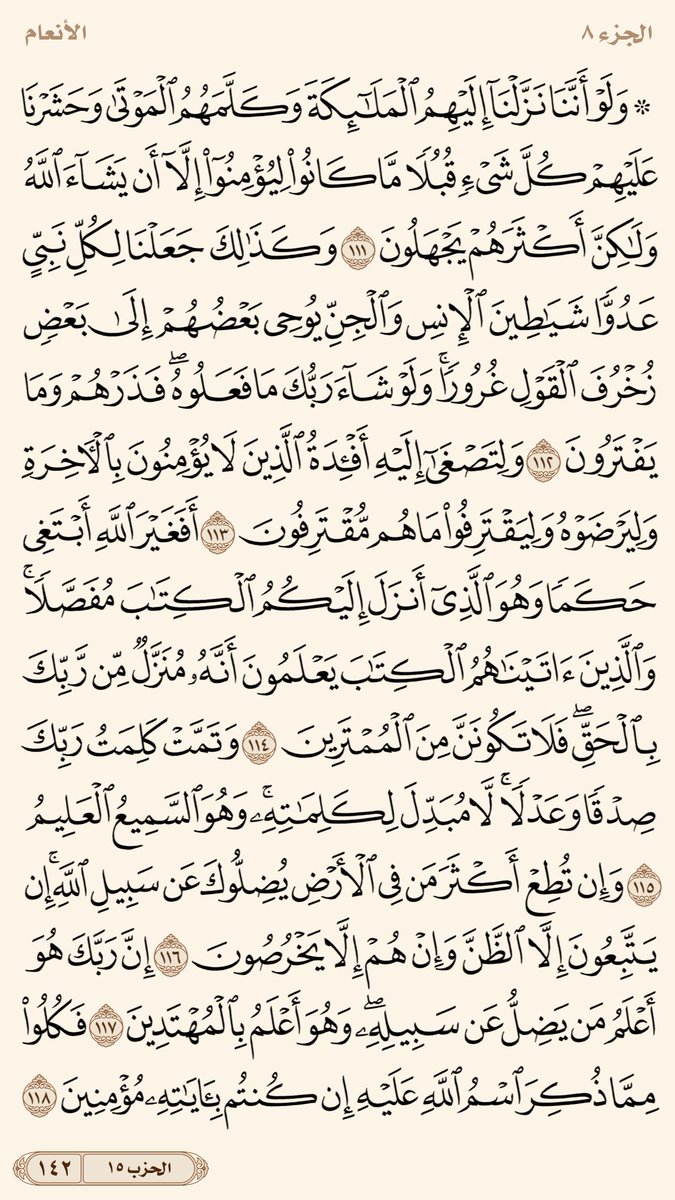 الجزء ٨
الأنعام
۞ وَلَوۡ أَنَّنَا نَزَّلۡنَآ إِلَيۡهِمُ ٱلۡمَلَٰٓئِكَةَ وَكَلَّمَهُمُ ٱلۡمَوۡتَىٰ وَحَشَرۡنَا
عَلَيۡهِمۡ كُلَّ شَيۡءٖ قُبُلٗا مَّا كَانُواْ لِيُؤۡمِنُوٓاْ إِلَّآ أَن يَشَآءَ ٱللَّهُ
وَلَٰكِنَّ أَكۡثَرَهُمۡ يَجۡهَلُونَ ١١١ وَكَذَٰلِكَ جَعَلۡنَا لِكُلِّ نَبِيٍّ
عَدُوّٗا شَيَٰطِينَ ٱلۡإِنسِ وَٱلۡجِنِّ يُوحِي بَعۡضُهُمۡ إِلَىٰ بَعۡضٖ
زُخۡرُفَ ٱلۡقَوۡلِ غُرُورٗاۚ وَلَوۡ شَآءَ رَبُّكَ مَا فَعَلُوهُۖ فَذَرۡهُمۡ وَمَا
يَفۡتَرُونَ ١١٢ وَلِتَصۡغَىٰٓ إِلَيۡهِ أَفۡـِٔدَةُ ٱلَّذِينَ لَا يُؤۡمِنُونَ بِٱلۡأٓخِرَةِ
وَلِيَرۡضَوۡهُ وَلِيَقۡتَرِفُواْ مَا هُم مُّقۡتَرِفُونَ ١١٣ أَفَغَيۡرَ ٱللَّهِ أَبۡتَغِي
حَكَمٗا وَهُوَ ٱلَّذِيٓ أَنزَلَ إِلَيۡكُمُ ٱلۡكِتَٰبَ مُفَصَّلٗاۚ
وَٱلَّذِينَ ءَاتَيۡنَٰهُمُ ٱلۡكِتَٰبَ يَعۡلَمُونَ أَنَّهُۥ مُنَزَّلٞ مِّن رَّبِّكَ
بِٱلۡحَقِّۖ فَلَا تَكُونَنَّ مِنَ ٱلۡمُمۡتَرِينَ ١١٤ وَتَمَّتۡ كَلِمَتُ رَبِّكَ
صِدۡقٗا وَعَدۡلٗاۚ لَّا مُبَدِّلَ لِكَلِمَٰتِهِۦۚ وَهُوَ ٱلسَّمِيعُ ٱلۡعَلِيمُ
١١٥ وَإِن تُطِعۡ أَكۡثَرَ مَن فِي ٱلۡأَرۡضِ يُضِلُّوكَ عَن سَبِيلِ ٱللَّهِۚ إِن
يَتَّبِعُونَ إِلَّا ٱلظَّنَّ وَإِنۡ هُمۡ إِلَّا يَخۡرُصُونَ ١١٦ إِنَّ رَبَّكَ هُوَ
أَعۡلَمُ مَن يَضِلُّ عَن سَبِيلِهِۦۖ وَهُوَ أَعۡلَمُ بِٱلۡمُهۡتَدِينَ ١١٧ فَكُلُواْ
مِمَّا ذُكِرَ ٱسۡمُ ٱللَّهِ عَلَيۡهِ إِن كُنتُم بِـَٔايَٰتِهِۦ مُؤۡمِنِينَ ١١٨
الحزب ١٥
١٤٢